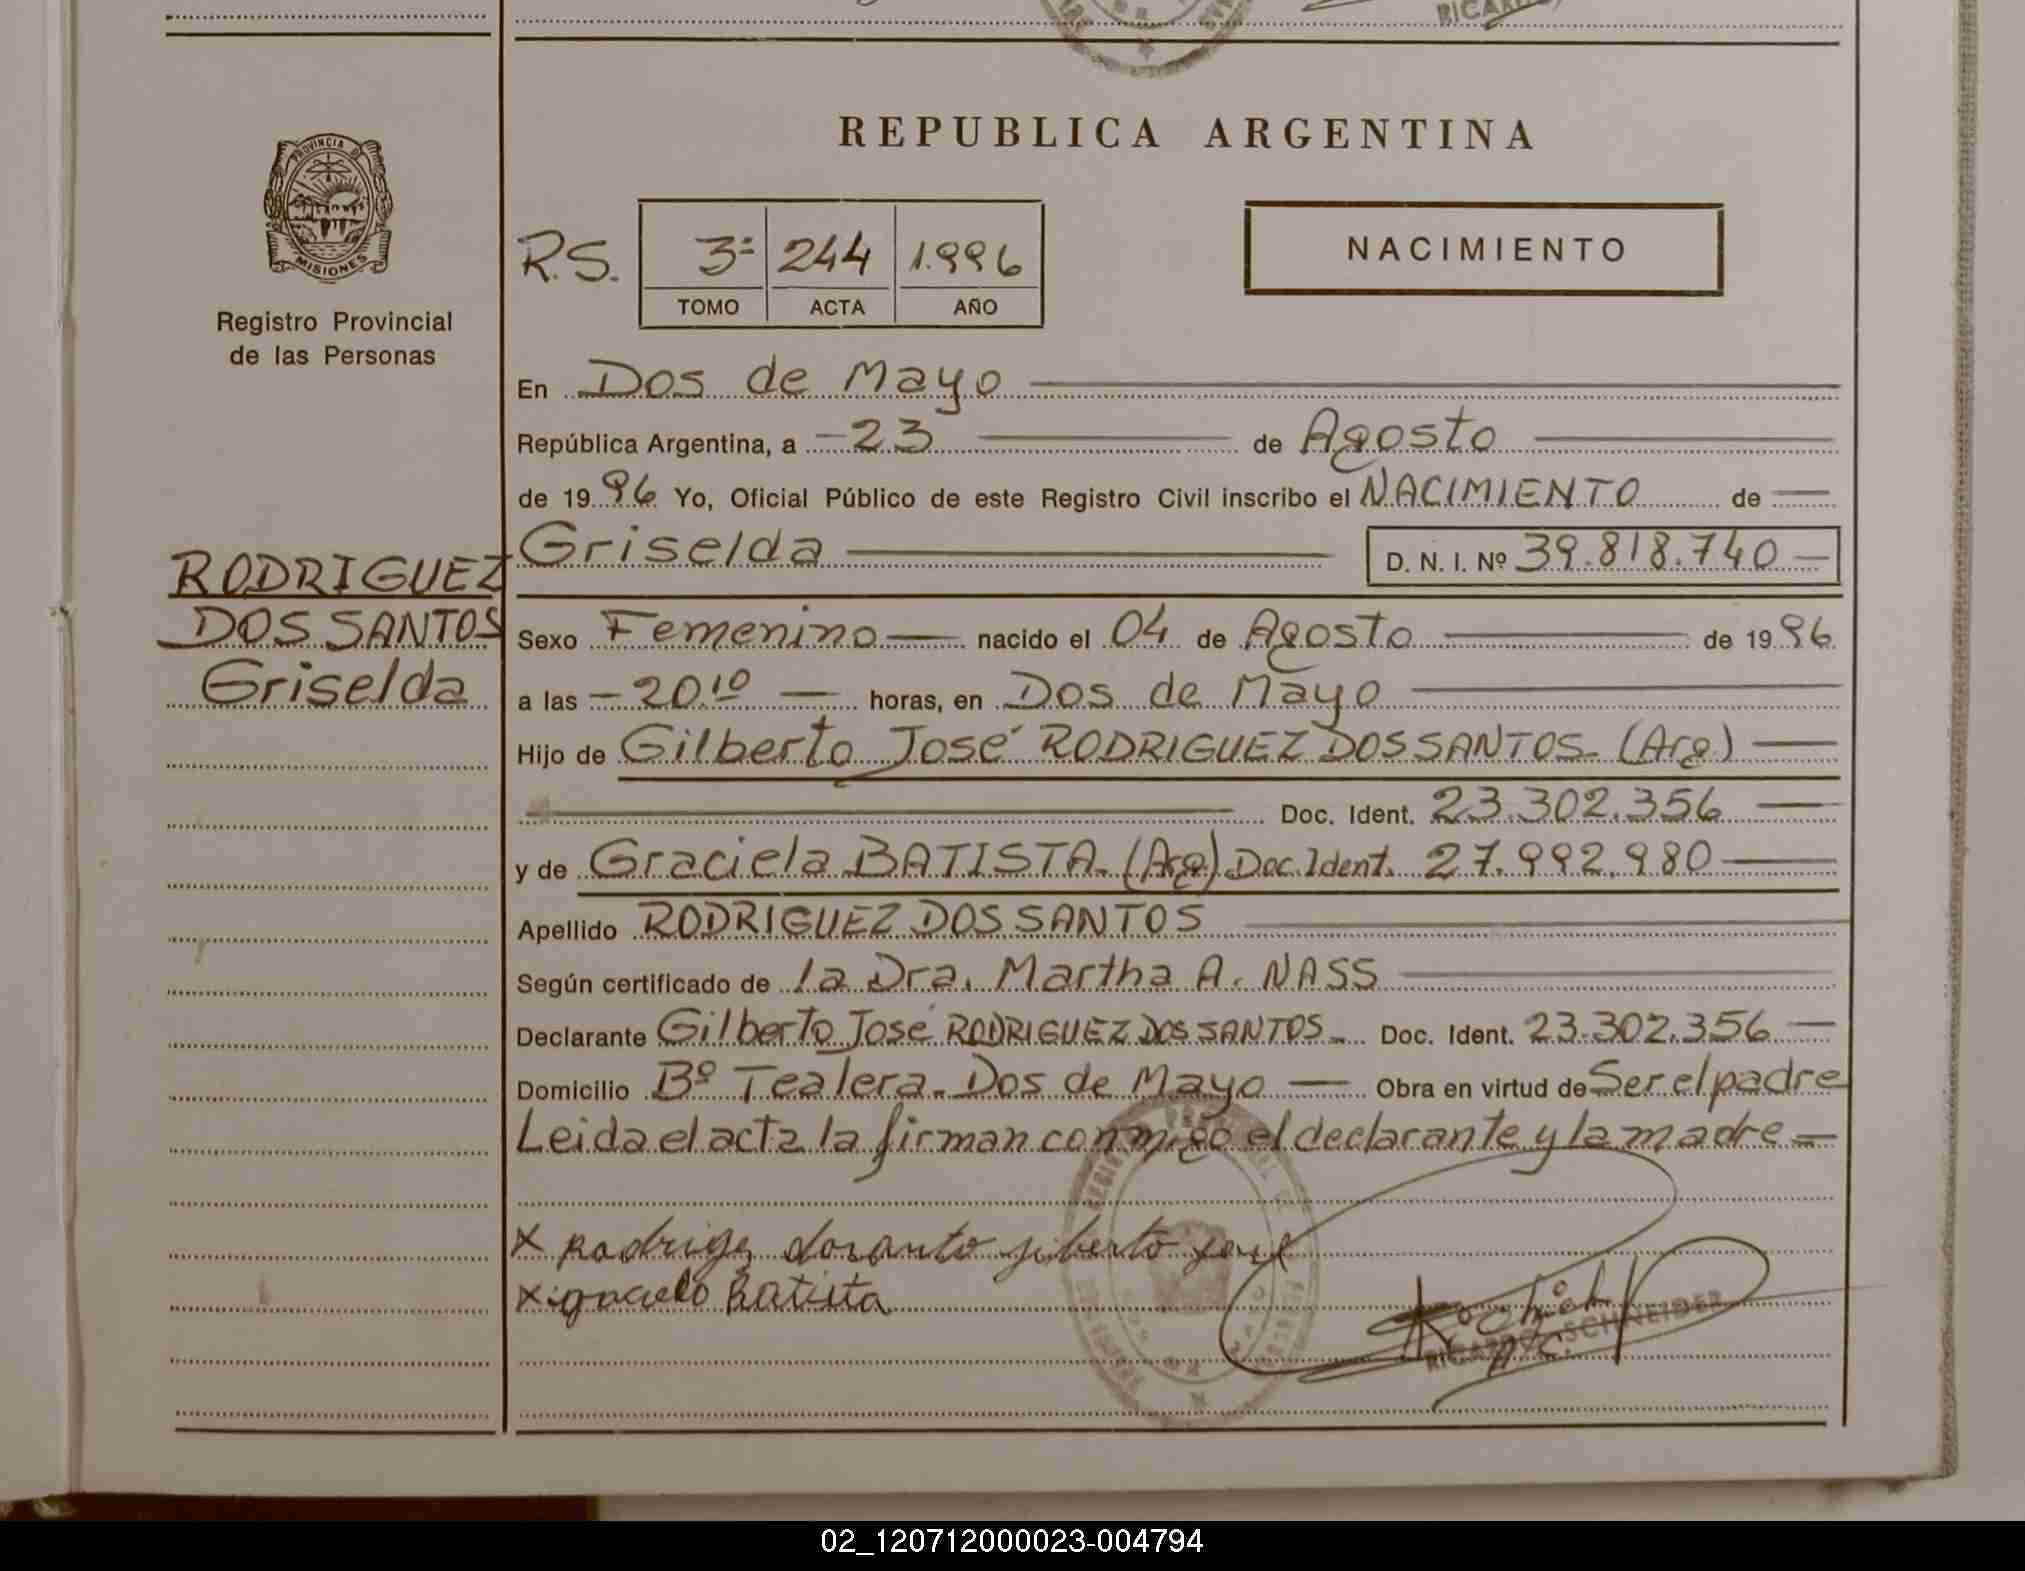 REPUBLICA ARGENTINA
PROVINCIA DE
MISIONES
Registro Provincial
de las Personas
R.S. 3º 244 1.996
TOMO ACTA AÑO
NACIMIENTO
En Dos de Mayo
República Argentina, a 23 de Agosto
de 1996 Yo, Oficial Público de este Registro Civil inscribo el NACIMIENTO de
Griselda D. N. I. Nº 39.818.740
RODRIGUEZ
DOS SANTOS
Griselda
Sexo Femenino nacido el 04 de Agosto de 1996
a las 20.10 horas, en Dos de Mayo
Hijo de Gilberto José RODRIGUEZ DOS SANTOS (Arg.)
Doc. Ident. 23.302.356
y de Graciela BATISTA (Arg.) Doc. Ident. 27.992.980
Apellido RODRIGUEZ DOS SANTOS
Según certificado de la Dra. Martha A. NASS
Declarante Gilberto José RODRIGUEZ DOS SANTOS Doc. Ident. 23.302.356
Domicilio Bº Tealera. Dos de Mayo Obra en virtud de Ser el padre
Leida el acta la firman conmigo el declarante y la madre
Batista
RICARDO SCHNEIDER
02_120712000023-004794